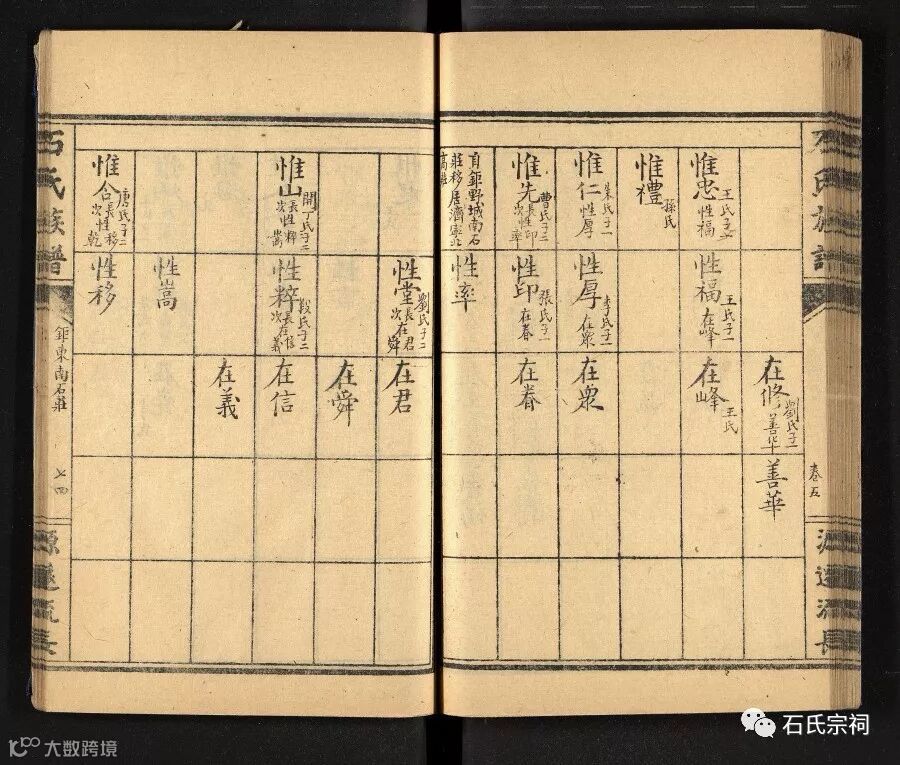 石氏族譜
卷五
源遠流長
在修
劉氏子一
善华
善華
惟忠
王氏子一
性福
性福
王氏子一
在峰
在峰
王氏
惟禮
孫氏
惟仁
朱氏子一
性厚
性厚
李氏子一
在眾
在眾
惟先
曹氏子二
長性印
次性率
性印
張氏子一
在春
在春
自鉅野城南石
莊移居濟寧北
性率
性堂
劉氏子二
長在君
次在舜
在君
在舜
惟山
開丁氏子二
長性粹
次性嵩
性粹
段氏子二
長在信
次在義
在信
在義
性嵩
惟合
唐氏子二
長性移
次性乾
性移
石氏族譜
鉅東南石莊
七四
源遠流長
石氏宗祠
大数跨境